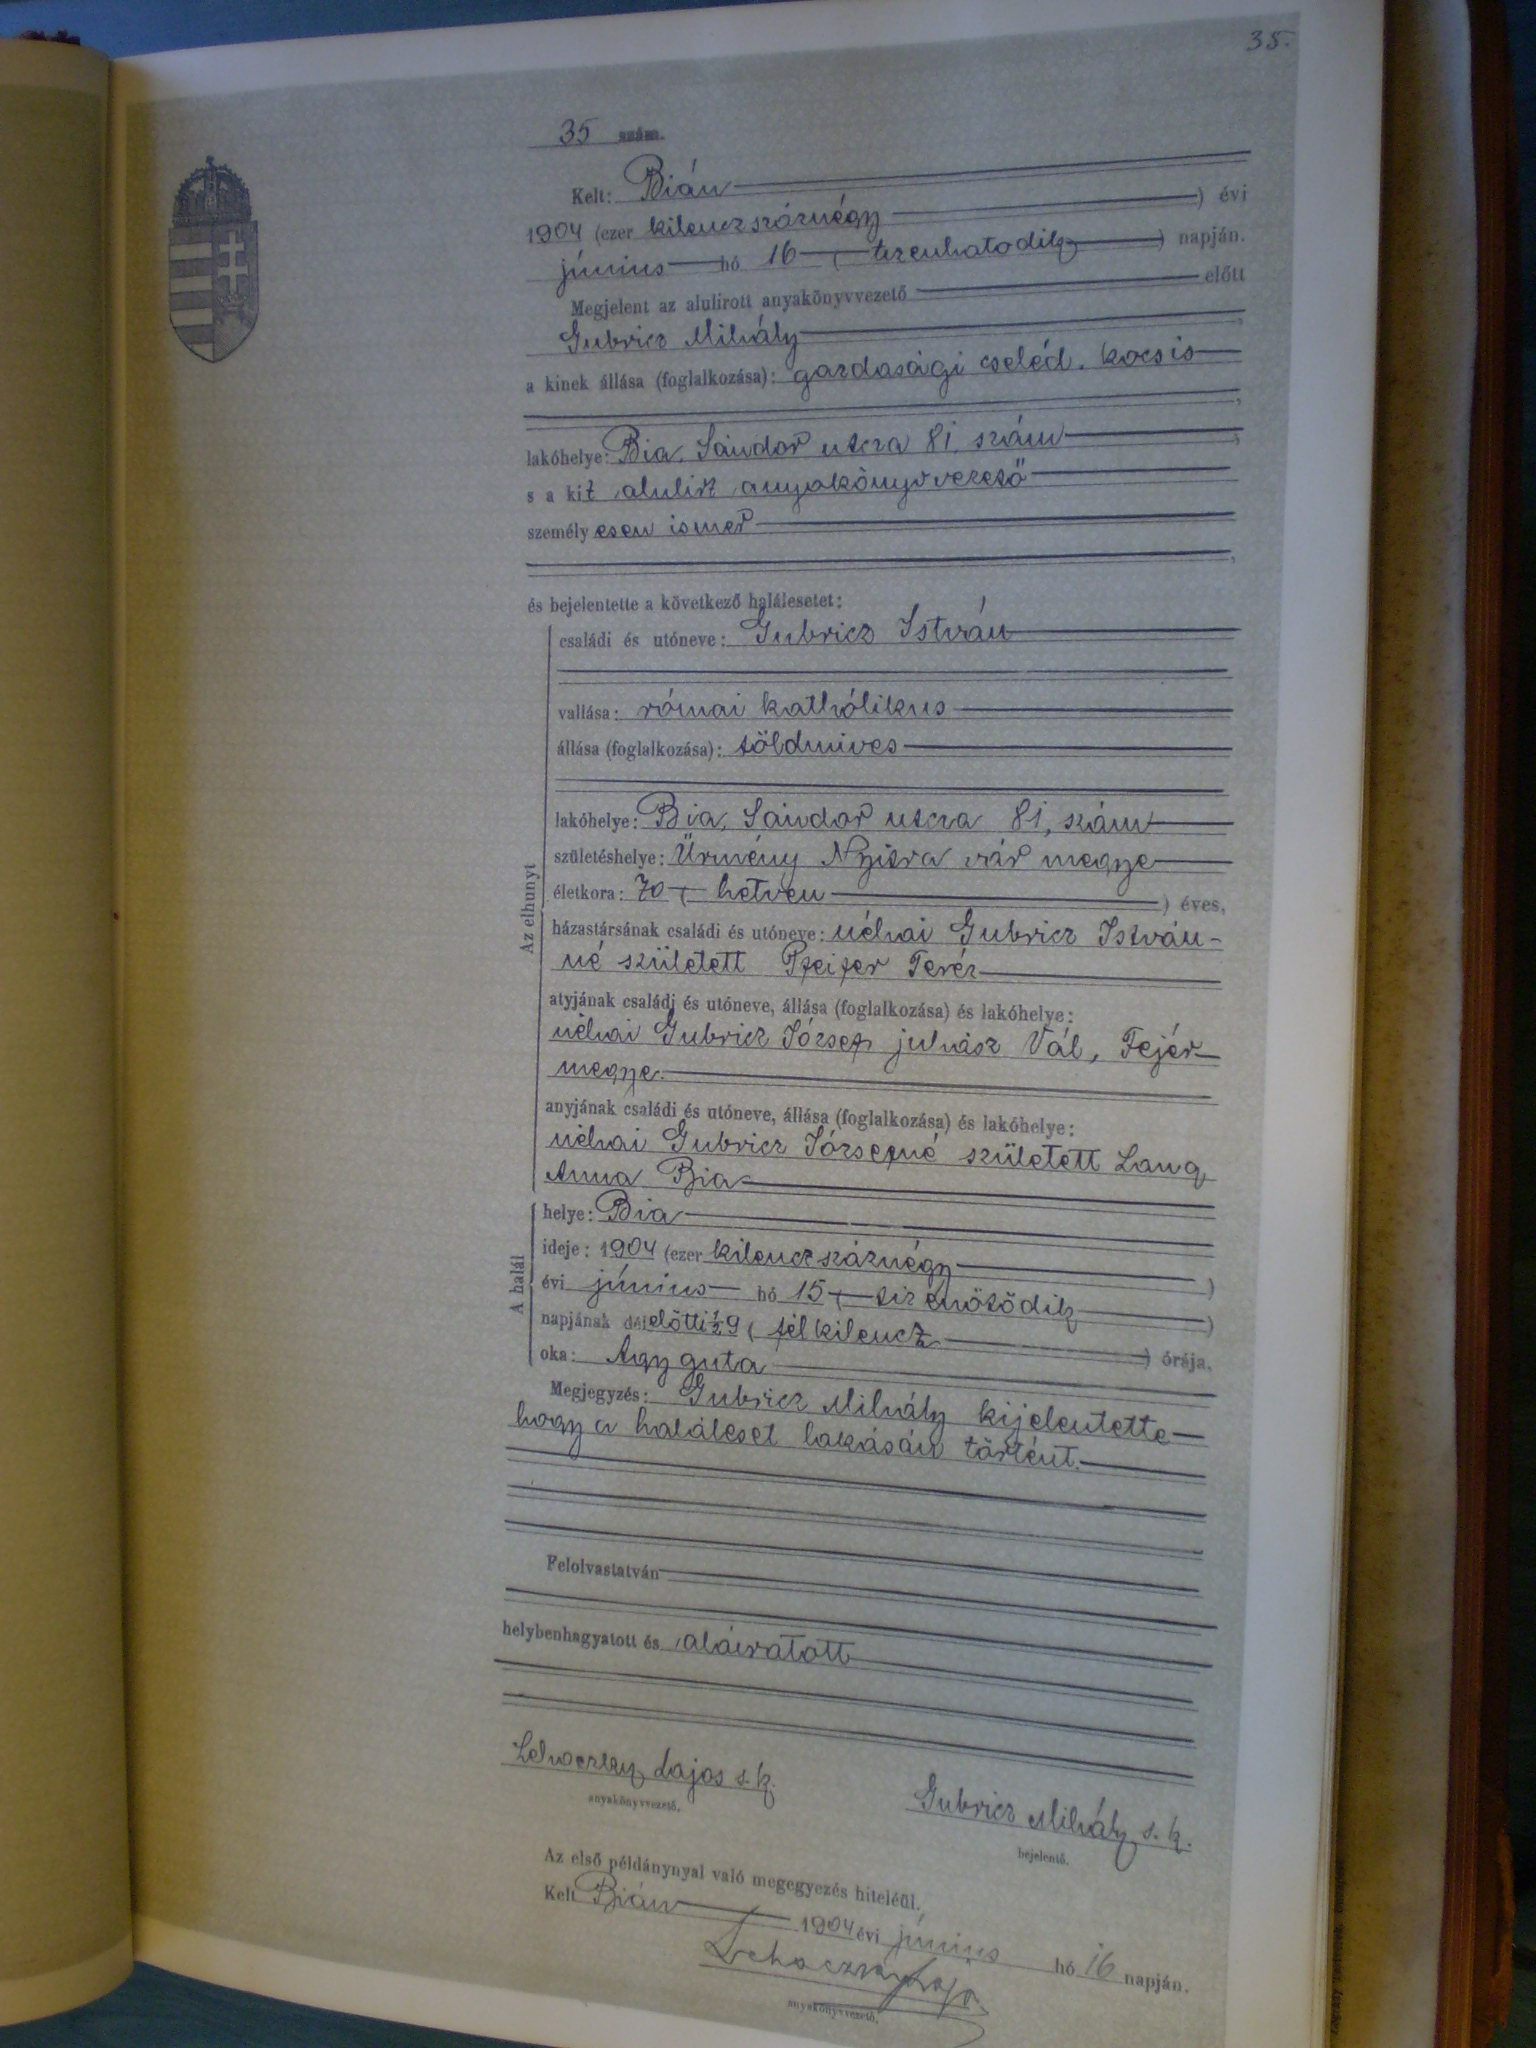 35.
35 szám.
Kelt: Bián
1904 (ezer kilenczszáznégy ) évi
június hó 16 ( tizenhatodik ) napján.
Megjelent az alulirott anyakönyvvezető előtt
Gubricz Mihály,
a kinek állása (foglalkozása): gazdasági cseléd. kocsis
lakóhelye: Bia, Sándor utcza 81, szám,
s a kit alulirt anyakönyvvezető
személyesen ismer
és bejelentette a következő halálesetet:
Az elhunyt
családi és utóneve: Gubricz István
vallása: római kathólikus
állása (foglalkozása): földmives
lakóhelye: Bia, Sándor utcza 81, szám
születéshelye: Ürmény Nyitra vár megye
életkora: 70 ( hetven ) éves,
házastársának családi és utóneve: néhai Gubricz István-
né született Pfeifer Teréz
atyjának családi és utóneve, állása (foglalkozása) és lakóhelye:
néhai Gubricz József juhász Vál, Fejér
megye.
anyjának családi és utóneve, állása (foglalkozása) és lakóhelye:
néhai Gubricz Józsefné született Lang
Anna Bia
A halál
helye: Bia
ideje: 1904 (ezer kilenczszáznégy )
évi június hó 15 ( tizenötödik )
napjának délelőtti ½9 ( fél kilencz ) órája.
oka: Agy guta
Megjegyzés: Gubricz Mihály kijelentette
hogy a haláleset lakásán történt.
Felolvastatván
helybenhagyatott és aláiratott
Lehoczky Lajos s.k.
anyakönyvvezető.
Gubricz Mihály s.k.
bejelentő.
Az első példánynyal való megegyezés hiteléül.
Kelt Bián 1904 évi június hó 16 napján.
Lehoczky Lajos
anyakönyvvezető.